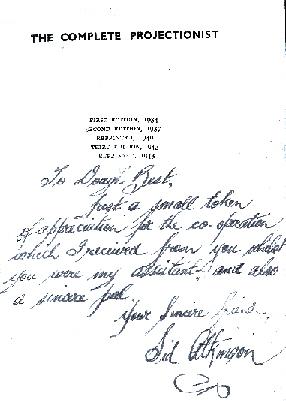 THE COMPLETE PROJECTIONIST
FIRST EDITION, 19
SECOND EDITION, 19
To Best,
Just a small token
of appreciation for the co-operation
which I received from you whilst
you were my assistant, and also
a sincere pal
Your Sincere friend
Sid Atkinson